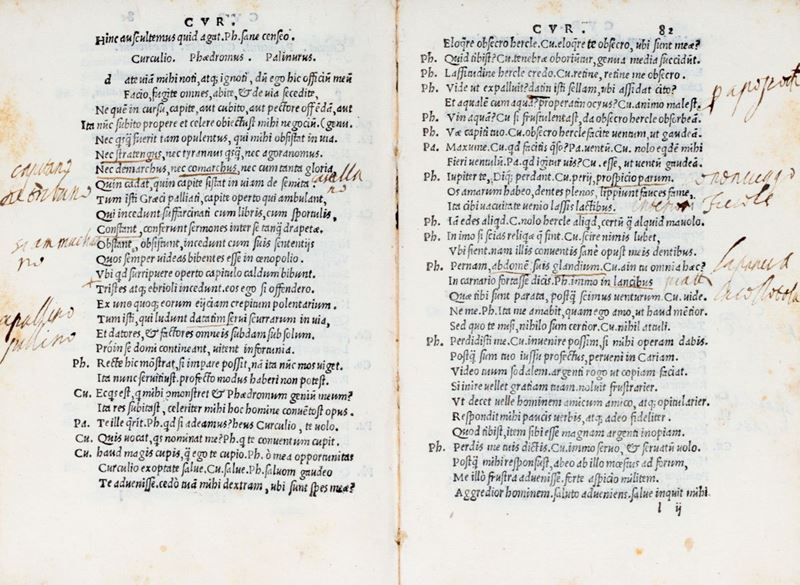 CVR.
Hinc auscultemus quid agat. Ph. sane censeo.
Curculio. Phædromus. Palinurus.
d ate viã mihi noti, atq; ignoti, dũ ego hic officiũ meũ
Facio, fugite omnes, abite, & de via secedite,
Ne quẽ in cursu, capite, aut cubito, aut pectore offẽdã, aut
Ita nũc subito propere et celere obiectuʃt mihi negociũ. (genu.
Nec q̃sq̃ fuerit tam opulentus, qui mihi obsistat in via.
Nec strategus, nec tyrannus q̃sq̃, nec agoranomus.
Nec demarchus, nec comarchus, nec cum tanta gloria
Quin cadat, quin capite sistat in uiam de semita
Tum isti Græci palliati, capite operto qui ambulant,
Qui incedunt suffarcinati cum libris, cum sportulis,
Constant, conserunt sermones inter se tanq̃ drapetæ.
Obstant, obsistunt, incedunt cum suis sententijs
Quos semper videas bibentes esse in œnopolio.
Vbi qd surripuere operto capitulo caldum bibunt.
Tristes atq; ebrioli incedunt. eos ego si offendero.
Ex uno quoq; eorum eijciam crepitum polentarium.
Tum isti, qui ludunt datatim serui scurrarum in uia,
Et datores, & factores omneis subdam sub solum.
Próin se domi contineant, uitent infortunia.
Ph. Recte hic mõstrat, si impare possit, nã ita nũc mos uiget.
Ita nunc seruitiust. profecto modus haberi non potest.
Cu. Ecqs est, q mihi cõmonstret & Phædromum geniũ meum?
Ita res subitast, celeriter mihi hoc homine conuẽtost opus.
Pa. Te ille q̃rit. Ph. qd si adeamus? heus Curculio, te volo.
Cu. Quis uocat, qs nominat me? Ph. q te conuentum cupit.
Cu. haud magis cupis, q̃ ego te cupio. Ph. ò mea opportunitas
Curculio exoptate salue. Cu. salue. Ph. saluom gaudeo
Te aduenisse. cedò tuã mihi dextram, ubi sunt spes meæ?
CVR. 82
Eloq̃re obsecro hercle. Cu. eloq̃re te obsecro, ubi sunt meæ?
Ph. Quid tibist? Cu. tenebræ oboriũtur, genua media succidũt.
Ph. Lassitudine hercle credo. Cu. retine, retine me obsecro.
Ph. Vide ut expalluit? datin isti sellam, ubi assidat cito?
Et aqualẽ cum aqua? properatin ocyus? Cu. animo malest.
Ph. Vin aquã? Cu. si frustulentast, da obsecro hercle obsorbeã.
Ph. Væ capiti tuo. Cu. obsecro hercle facite uentum, ut gaudeã.
Pa. Maxume. Cu. qd facitis q̃so? Pa. uentũ. Cu. nolo eqdẽ mihi
Fieri uenulũ. Pa. qd igitur uis? Cu. esse, ut uentũ gaudeã.
Ph. Iupiter te, Diiq; perdant. Cu. perij, prospicio parum.
Os amarum habeo, dentes plenos, lippiunt fauces fame,
Ita cibi uacuitate uenio lassis lactibus.
Ph. Iã edes aliqd. C. nolo hercle aliqd, certũ q̃ aliquid mauolo.
Ph. In imo si scias reliqæ q̃ sint. Cu. scire nimis lubet,
Vbi sient. nam illis conuentis sanè opust meis dentibus.
Ph. Pernam, abdomẽ, suis glandium. Cu. ain tu omnia hæc?
In carnario fortasse dicis. Ph. immo in lancibus
Quæ tibi sunt parata, postq̃ scimus uenturum. Cu. uide.
Ne me. Ph. Ita me amabit, quam ego amo, ut haud mẽtior.
Sed quo te misi, nihilo sum certior. Cu. nihil attuli.
Ph. Perdidisti me. Cu. inuenire possim, si mihi operam dabis.
Postq̃ sum tuo iussu profectus, perueni in Cariam.
Video tuum sodalem. argenti rogo ut copiam faciat.
Si inire uellet gratiam tuam. noluit frustrarier.
Vt decet uelle hominem amicum amico, atq; opitularier.
Respondit mihi paucis uerbis, atq; adeo fideliter.
Quod tibist, item sibi esse magnam argenti inopiam.
Ph. Perdis me tuis dictis. Cu. immo seruo, & seruatũ uolo.
Postq̃ mihi responsust, abeo ab illo mœstus ad forum,
Me illò frustra aduenisse. forte aspicio militem.
Aggredior hominem. saluto adueniens. salue inquit mihi
l ij